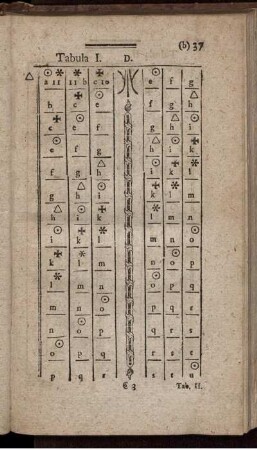 (b) 37
Tabula I. D.
△ ☉ a 11 * 11 b ✠ c 10 ☉ e f g
b ✠ c e f g △ h
✠ c e f g △ h ☉ i
e f g △ h ☉ i ✠ k
f g △ h ☉ i ✠ k * l
g △ h ☉ i ✠ k * l m
△ h ☉ i ✠ k * l m n
☉ i ✠ k * l m n ☉ o
✠ k * l m n ☉ o p
* l m n ☉ o p q
m n ☉ o p q r
n ☉ o p q r s
☉ o p q r s t
p q s s t ☉ u
Tab. II.